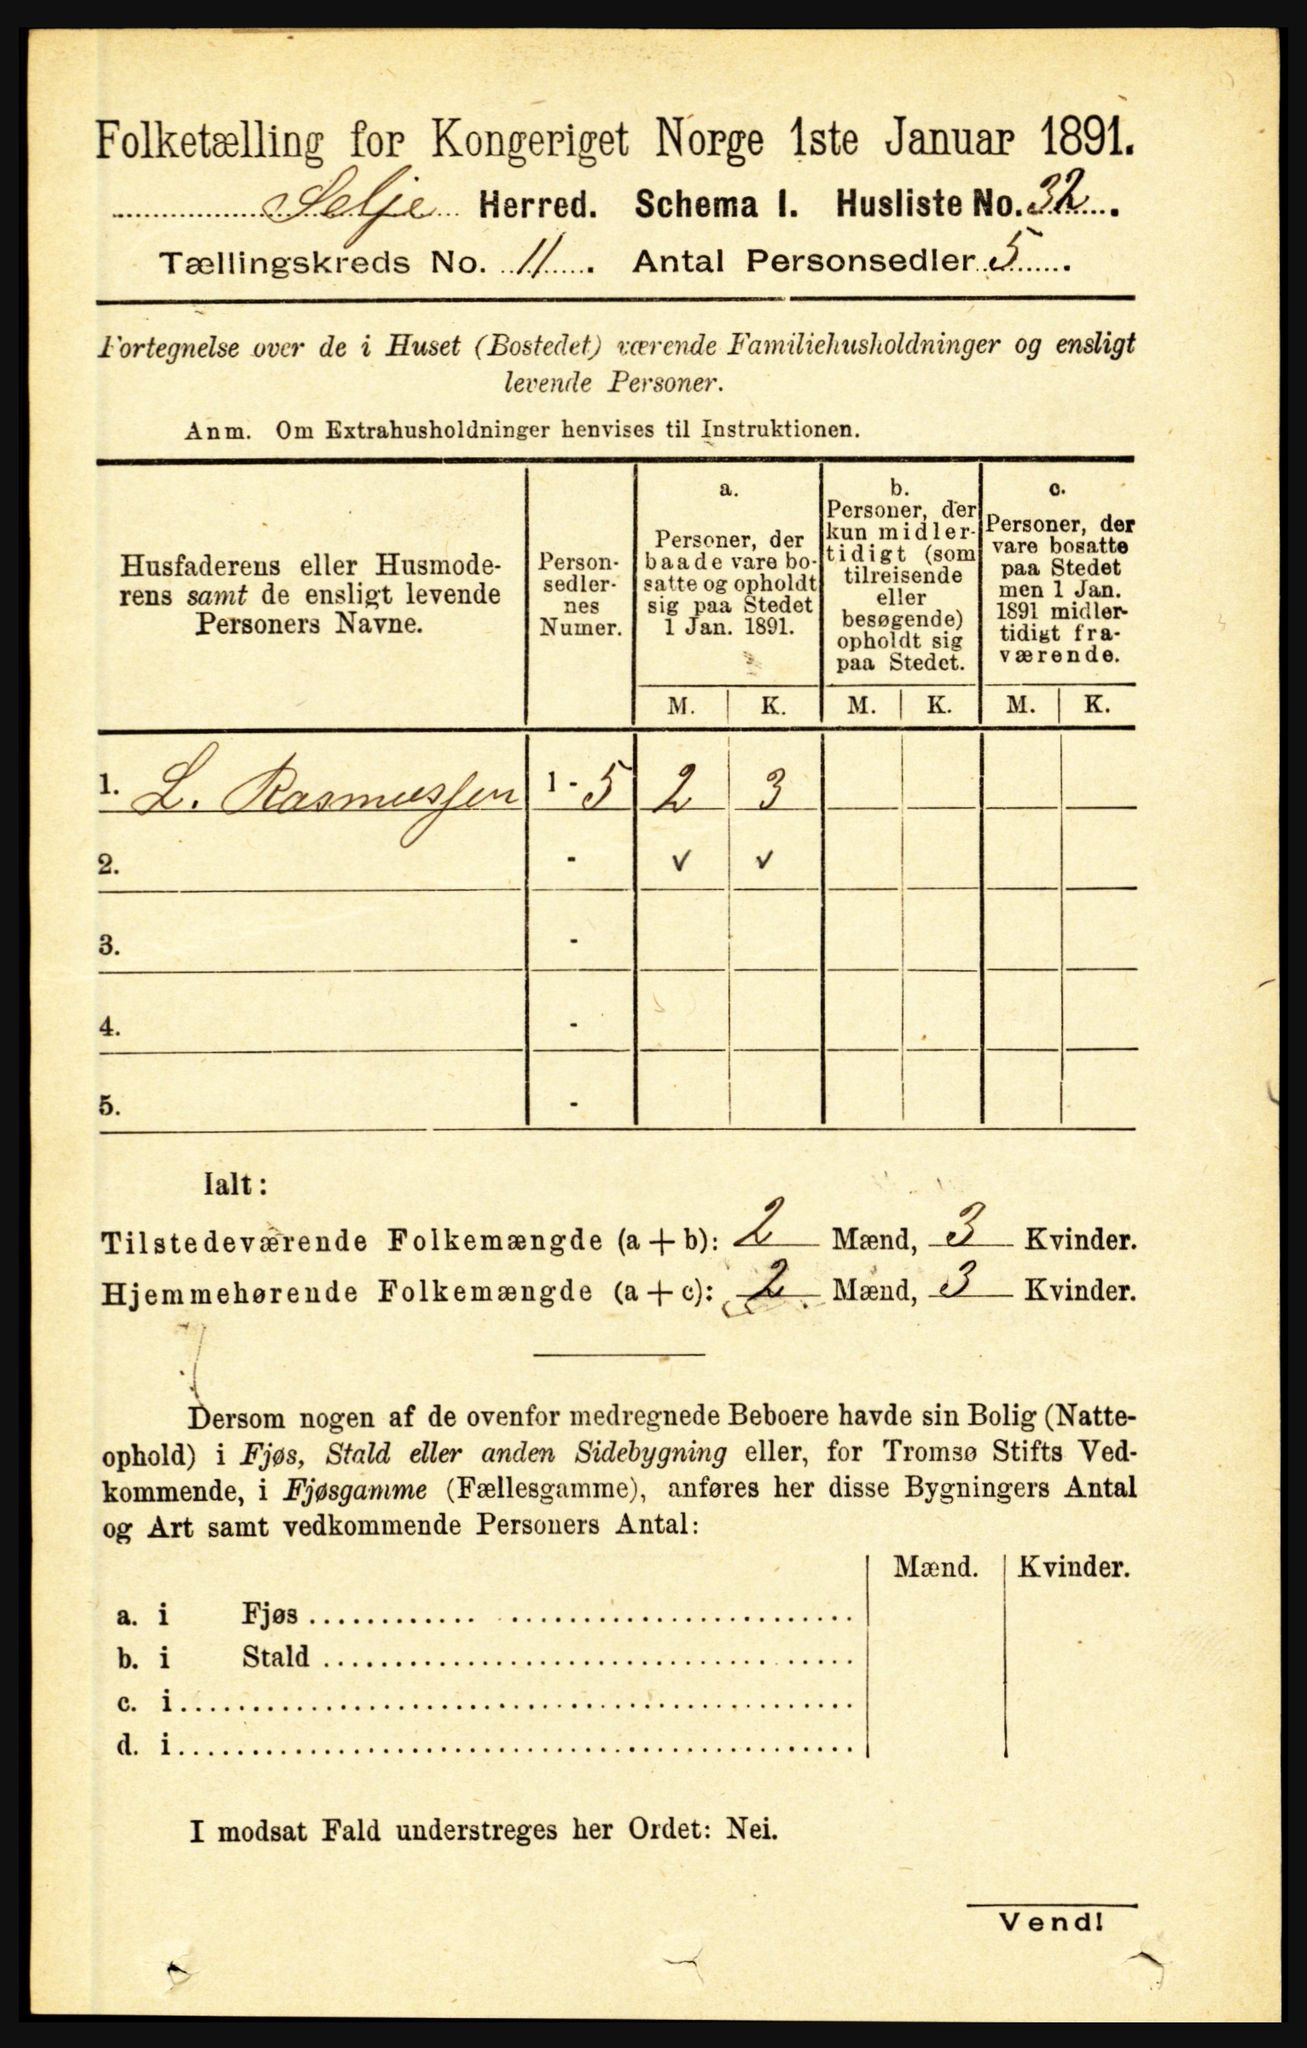 Folketælling for Kongeriget Norge 1ste Januar 1891.
Selje Herred. Schema I. Husliste No. 32.
Tællingskreds No. 11. Antal Personsedler 5.
Fortegnelse over de i Huset (Bostedet) værende Familiehusholdninger og ensligt
levende Personer.
Anm. Om Extrahusholdninger henvises til Instruktionen.
Husfaderens eller Husmode-
rens samt de ensligt levende
Personers Navne.
Person-
sedler-
nes
Numer.
a.
Personer, der
baade vare bo-
satte og opholdt
sig paa Stedet
1 Jan. 1891.
b.
Personer, der
kun midler-
tidigt (som
tilreisende
eller
besøgende)
opholdt sig
paa Stedet.
c.
Personer, der
vare bosatte
paa Stedet
men 1 Jan.
1891 midler-
tidigt fra-
værende.
M. K. M. K. M. K.
1. L. Rasmussen 1 - 5 2 3
2. - ✓ ✓
3. -
4. -
5. -
Ialt:
Tilstedeværende Folkemængde (a + b): 2 Mænd, 3 Kvinder.
Hjemmehørende Folkemængde (a + c): 2 Mænd, 3 Kvinder.
Dersom nogen af de ovenfor medregnede Beboere havde sin Bolig (Natte-
ophold) i Fjøs, Stald eller anden Sidebygning eller, for Tromsø Stifts Ved-
kommende, i Fjøsgamme (Fællesgamme), anføres her disse Bygningers Antal
og Art samt vedkommende Personers Antal:
Mænd. Kvinder.
a. i Fjøs
b. i Stald
c. i
d. i
I modsat Fald understreges her Ordet: Nei.
Vend!